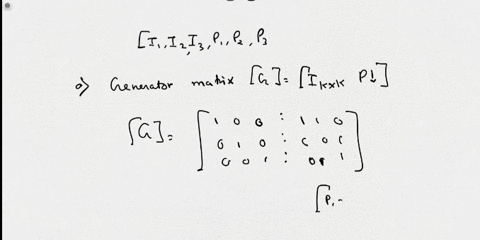 [I₁, I₂, I₃, P₁, P₂, P₃
a) Generator matrix [G] = [I K×K P↓]
[G] = [1 0 0 : 1 1 0
0 1 0 : 0 0 1
0 0 1 : 0 1 1]
[P₁ -